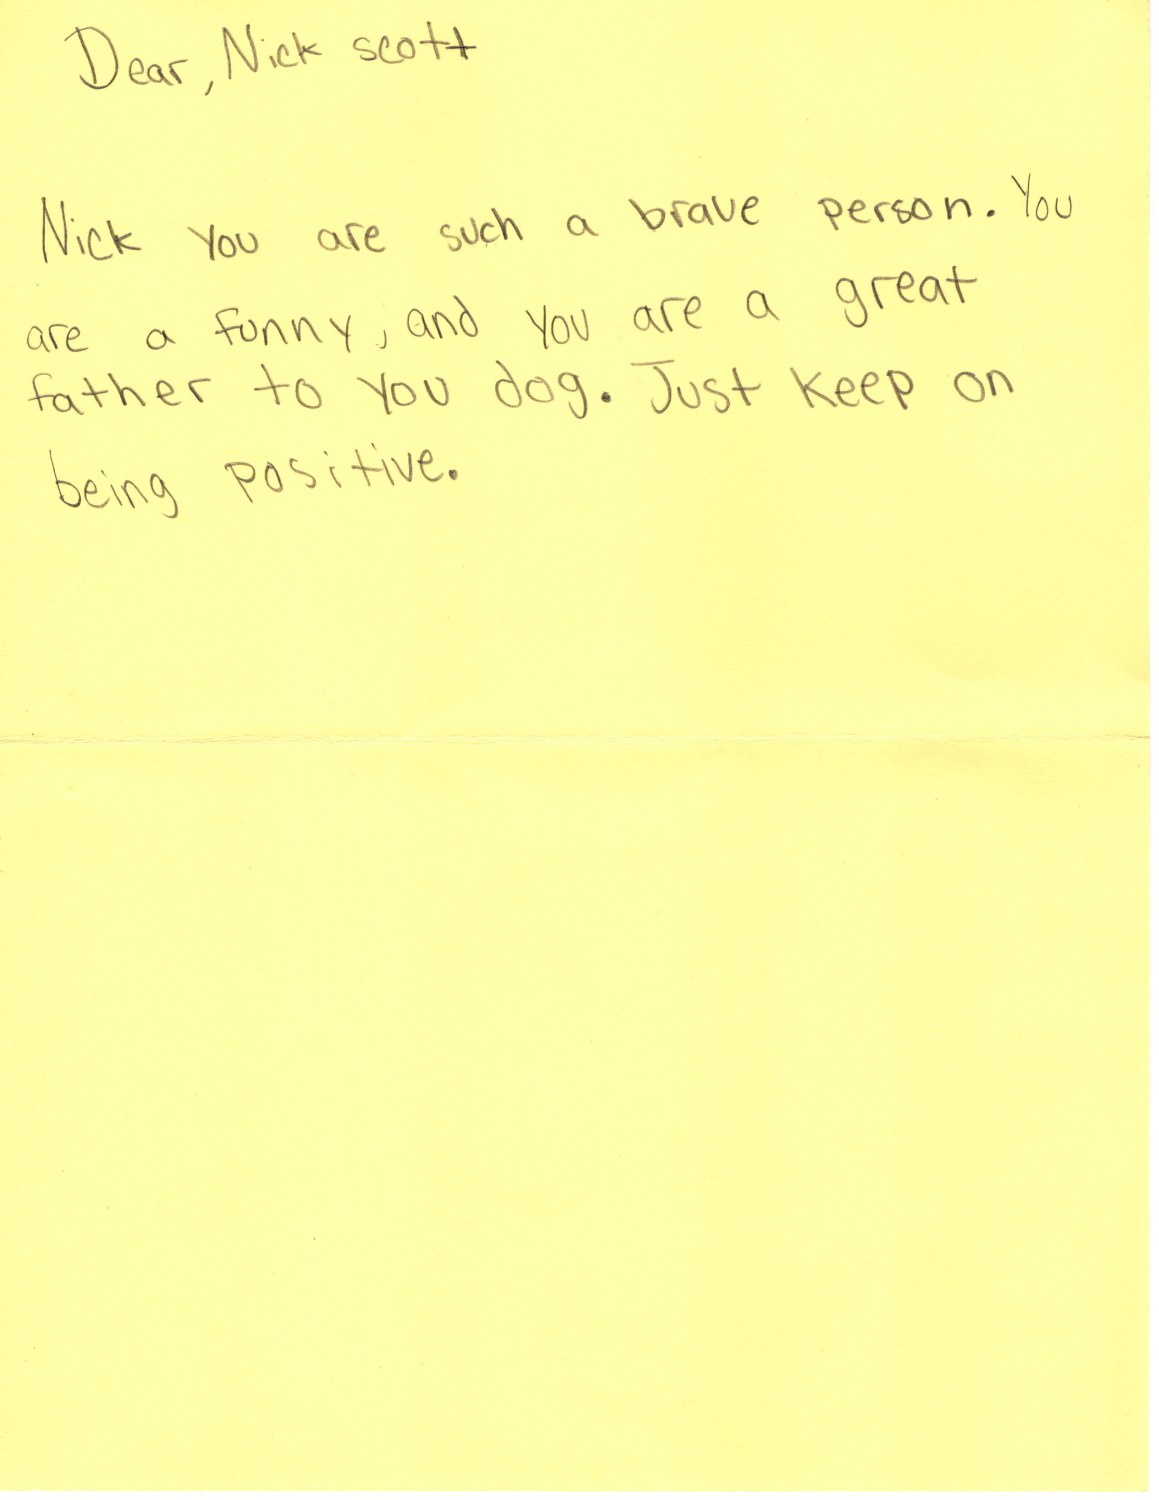 Dear, Nick scott
Nick you are such a brave person. You
are a funny, and you are a great
father to you dog. Just keep on
being positive.